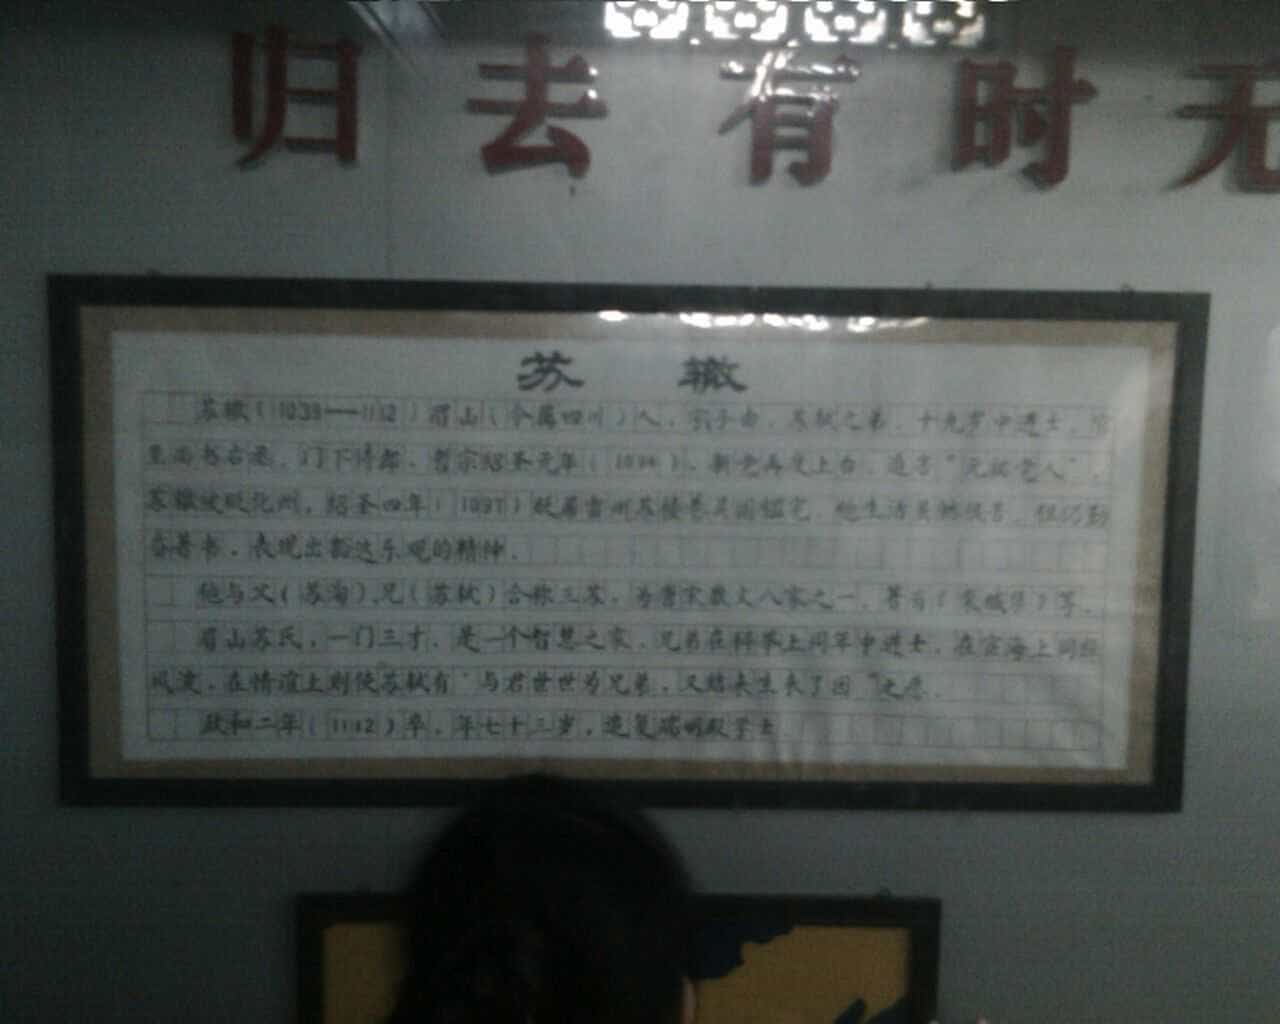 归去有时无
苏 辙
苏辙(1039——1112)眉山(今属四川)人，字子由，苏轼之弟，十九岁中进士，官
至尚书右丞、门下侍郎，哲宗绍圣元年(1094)，新党再度上台，迫害"元祐党人"，
苏辙被贬化州，绍圣四年(1097)贬居雷州苏楼巷吴国鉴宅，他生活虽然很苦，但仍勤
奋著书，表现出豁达乐观的精神。
他与父(苏洵)、兄(苏轼)合称三苏，为唐宋散文八家之一，著有《栾城集》等。
眉山苏氏，一门三才，是一个智慧之家，兄弟在科举上同年中进士，在宦海上同经
风波，在情谊上则使苏轼有"与君世世为兄弟，又结来生未了因"之感。
政和二年(1112)卒，年七十三岁，追复端明殿学士